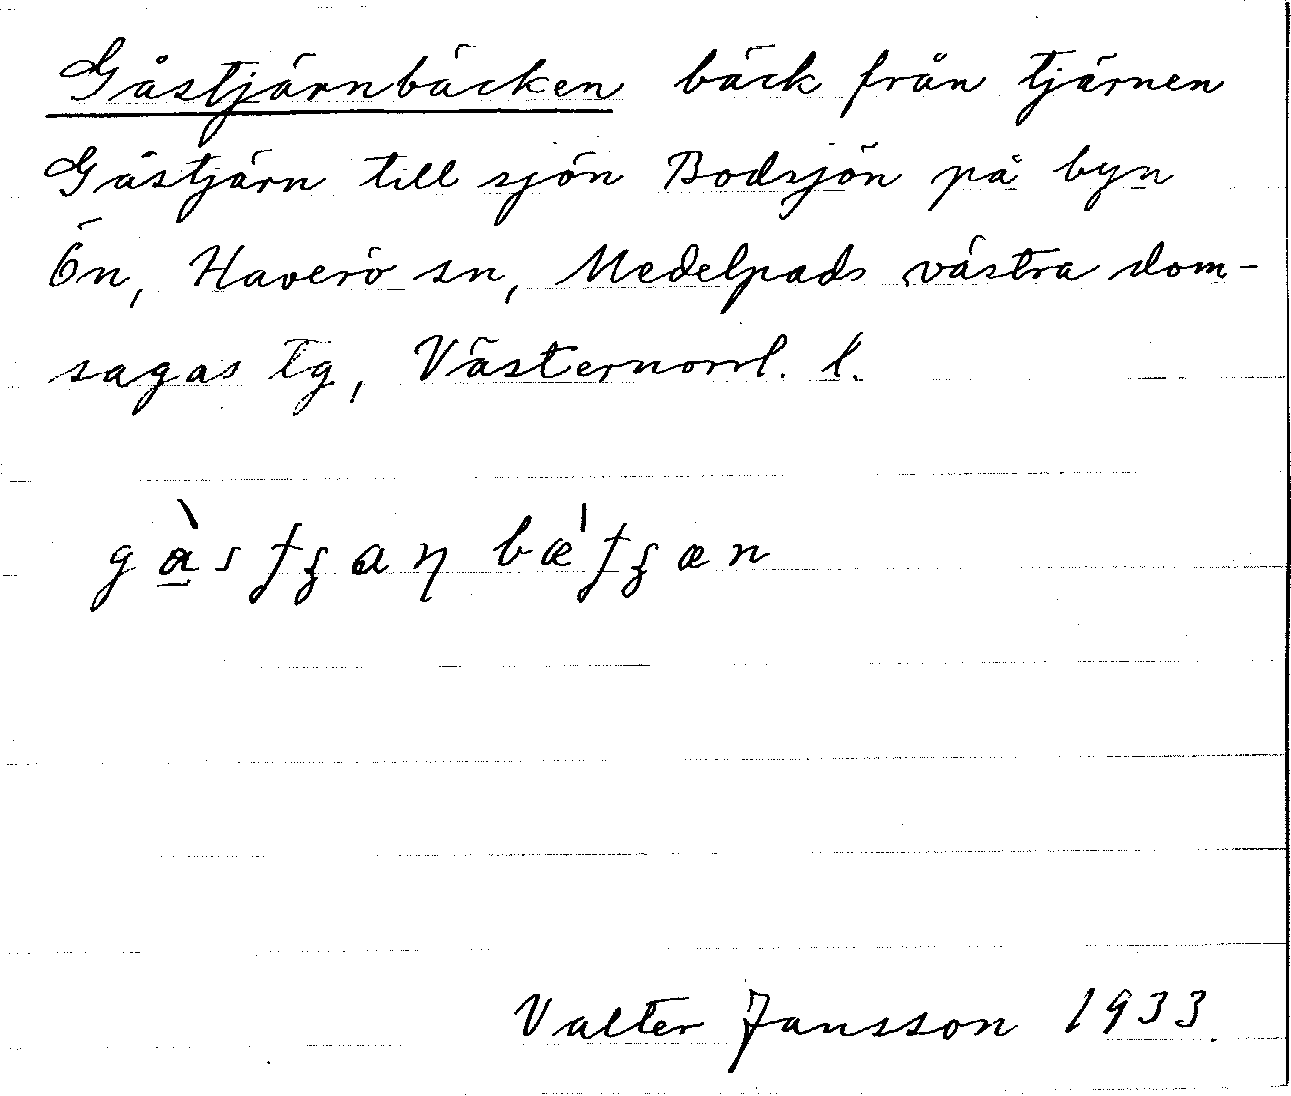 Gåstjärnbäcken bäck från tjärnen
Gåstjärn till sjön Bodsjön på byn
Ön, Haverö sn, Medelpads västra dom-
sagas tg, Västernorrl. l.
Valter Jansson 1933.